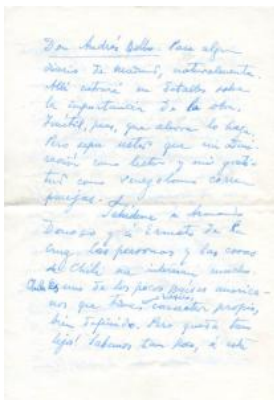 Don Andrés Bello. Para algún
diario de madrid, naturalmente.
Allí entraré en detalles sobre
la importancia de la obra.
Inútil, pues, que ahora lo haga.
Pero sepa usted que mi admi-
ración como lector y mi grati-
tud como venezolano corren
parejas.
Salúdeme a Armando
Donoso y á Ernesto de la
Cruz. Las personas y las cosas
de Chile me interesan mucho.
Chile es uno de los pocos países america-
nos que tiene carácter propio,
bien definido. Pero queda tan
lejos! Sabemos tan poco, á este